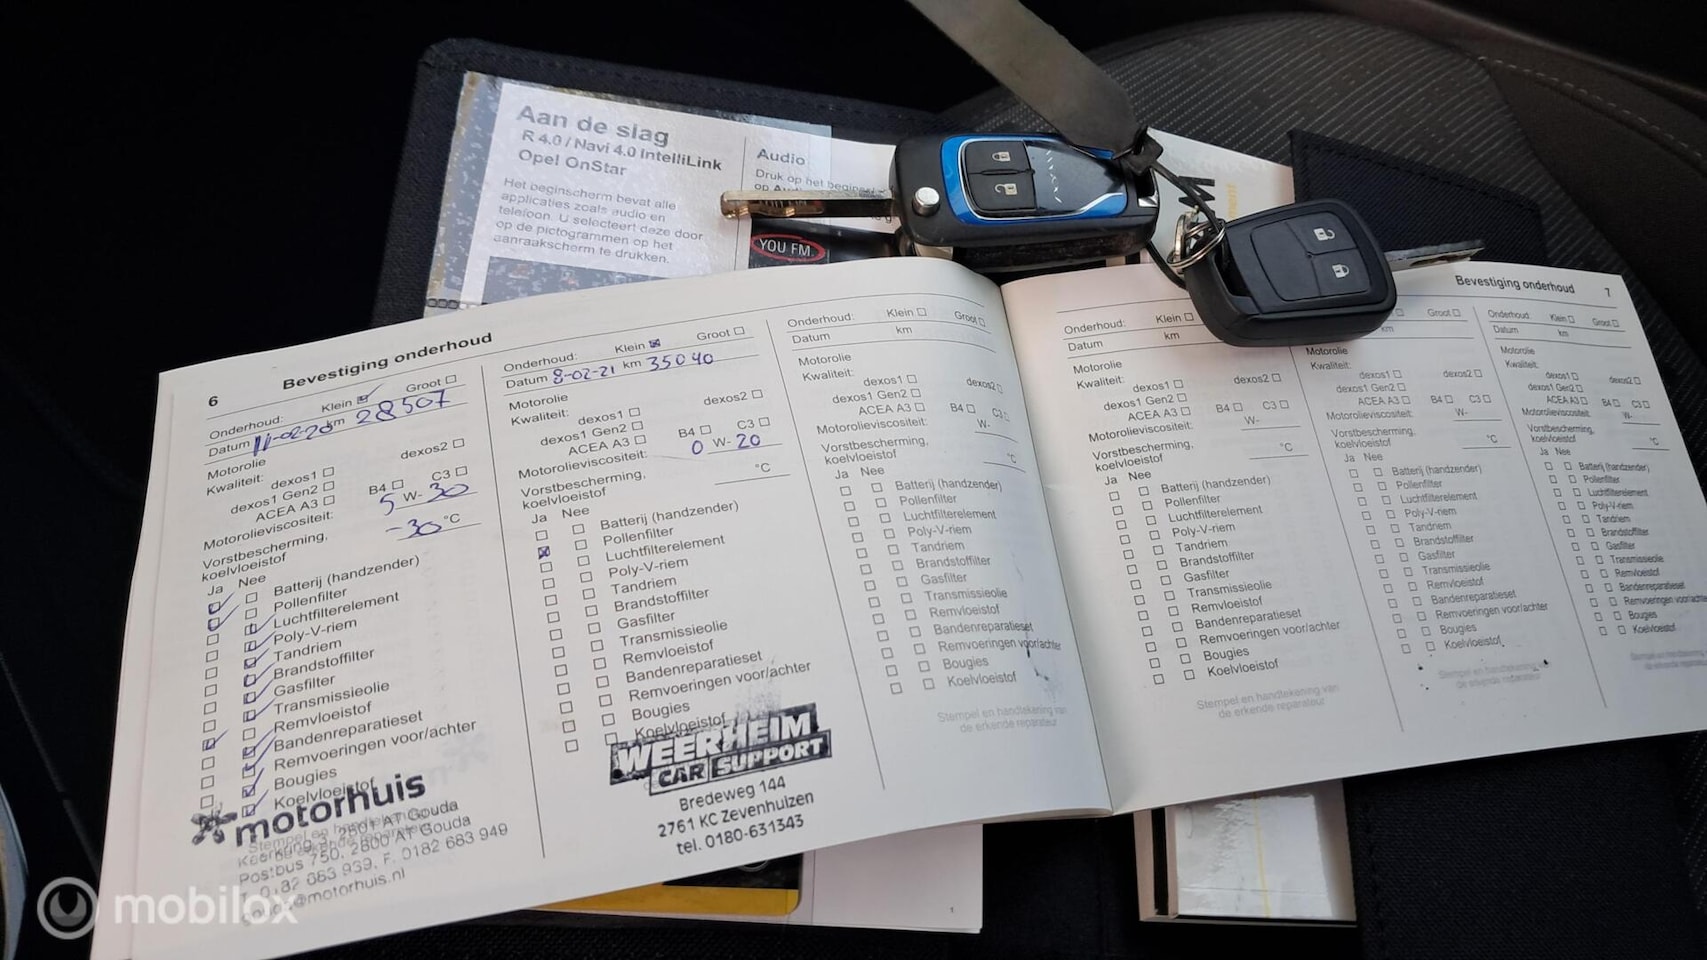 Aan de slag
R 4.0 / Navi 4.0 IntelliLink
Opel OnStar
Het beginscherm bevat alle
applicaties zoals audio en
telefoon. U selecteert deze door
op de pictogrammen op het
aanraakscherm te drukken.
Audio
Druk op het
YOU FM
6
Bevestiging onderhoud
Onderhoud: Klein Groot
Datum 11-02-20 km 28507
Motorolie
Kwaliteit: dexos1 dexos2
dexos1 Gen2
ACEA A3 B4 C3
Motorolieviscositeit: 5 W- 30
Vorstbescherming,
koelvloeistof -30 °C
Ja Nee
Batterij (handzender)
Pollenfilter
Luchtfilterelement
Poly-V-riem
Tandriem
Brandstoffilter
Gasfilter
Transmissieolie
Remvloeistof
Bandenreparatieset
Remvoeringen voor/achter
Bougies
Koelvloeistof
motorhuis
2801 AT Gouda
Postbus 750, 2800 AT Gouda
T. 0182 683 939, F. 0182 683 949
Onderhoud: Klein Groot
Datum 8-02-21 km 35040
Motorolie
Kwaliteit: dexos1 dexos2
dexos1 Gen2
ACEA A3 B4 C3
Motorolieviscositeit: 0 W- 20
Vorstbescherming,
koelvloeistof °C
Ja Nee
Batterij (handzender)
Pollenfilter
Luchtfilterelement
Poly-V-riem
Tandriem
Brandstoffilter
Gasfilter
Transmissieolie
Remvloeistof
Bandenreparatieset
Remvoeringen voor/achter
Bougies
Koelvloeistof
WEERHEIM
CAR SUPPORT
Bredeweg 144
2761 KC Zevenhuizen
tel. 0180-631343
Onderhoud: Klein Groot
Datum km
Motorolie
Kwaliteit: dexos1 dexos2
dexos1 Gen2
ACEA A3 B4 C3
Motorolieviscositeit: W-
Vorstbescherming,
koelvloeistof °C
Ja Nee
Batterij (handzender)
Pollenfilter
Luchtfilterelement
Poly-V-riem
Tandriem
Brandstoffilter
Gasfilter
Transmissieolie
Remvloeistof
Bandenreparatieset
Remvoeringen voor/achter
Bougies
Koelvloeistof
Stempel en handtekening van
de erkende reparateur
Bevestiging onderhoud 7
Onderhoud: Klein
Datum km
Motorolie
Kwaliteit: dexos1 dexos2
dexos1 Gen2
ACEA A3 B4 C3
Motorolieviscositeit: W-
Vorstbescherming,
koelvloeistof °C
Ja Nee
Batterij (handzender)
Pollenfilter
Luchtfilterelement
Poly-V-riem
Tandriem
Brandstoffilter
Gasfilter
Transmissieolie
Remvloeistof
Bandenreparatieset
Remvoeringen voor/achter
Bougies
Koelvloeistof
Stempel en handtekening van
de erkende reparateur
Groot
km
Motorolie
Kwaliteit: dexos1 dexos2
dexos1 Gen2
ACEA A3 B4 C3
Motorolieviscositeit: W-
Vorstbescherming,
koelvloeistof °C
Ja Nee
Batterij (handzender)
Pollenfilter
Luchtfilterelement
Poly-V-riem
Tandriem
Brandstoffilter
Gasfilter
Transmissieolie
Remvloeistof
Bandenreparatieset
Remvoeringen voor/achter
Bougies
Koelvloeistof
Stempel en handtekening van
de erkende reparateur
Onderhoud: Klein Groot
Datum km
Motorolie
Kwaliteit: dexos1 dexos2
dexos1 Gen2
ACEA A3 B4 C3
Motorolieviscositeit: W-
Vorstbescherming,
koelvloeistof °C
Ja Nee
Batterij (handzender)
Pollenfilter
Luchtfilterelement
Poly-V-riem
Tandriem
Brandstoffilter
Gasfilter
Transmissieolie
Remvloeistof
Bandenreparatieset
Remvoeringen voor/achter
Bougies
Koelvloeistof
1
mobilox